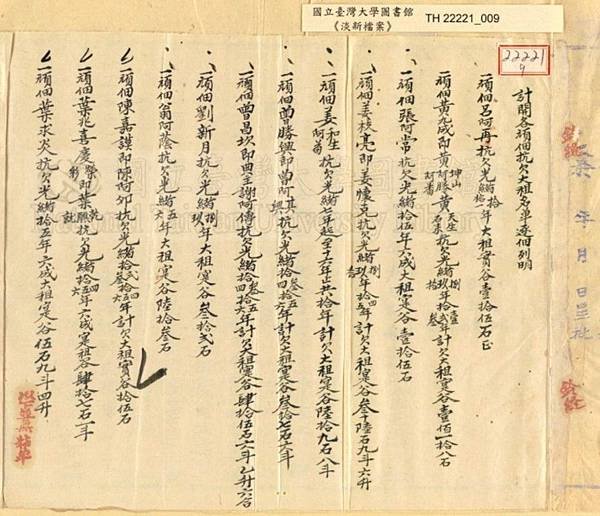 國立臺灣大學圖書館
《淡新檔案》
TH 22221_009
22221
9
計開各頑佃抗欠大租名單逐一列明
一頑佃呂阿再抗欠光緒拾年大租實谷壹拾伍石正
一頑佃黃允成即黃阿勝黃坤山阿番天生石來抗欠光緒捌玖年拾壹貳叁年計欠大租寔谷壹佰一拾八石
一頑佃張阿常抗欠光緒拾伍年六成大租寔谷壹拾伍石
一頑佃姜枝亮即姜懷克抗欠光緒捌玖拾年拾四年計欠大租寔谷叁十陸石九斗六升
一頑佃姜和生阿苟抗欠光緒七年起至十六年止共拾年大租寔谷陸拾九石八斗
一頑佃曾勝興即曾阿其興抗欠光緒拾四叁五六年計欠大租寔谷叁拾七石六斗
一頑佃曾昌坎即曾謝阿傳抗欠光緒拾叁四五六年計欠大租寔谷肆拾伍石六斗乙升六合
一頑佃劉新月抗欠光緒捌玖年大租寔谷叁拾貳石
一頑佃翁阿蔭抗欠光緒拾五六年大租寔谷陸拾叁石
一頑佃陳嘉謨即陳阿夘抗欠光緒拾貳叁四年計欠大租實谷拾伍石
一頑佃葉兆喜慶榮彩即葉勝乾就抗欠光緒拾四五六年六成寔租谷肆拾七石一斗
一頑佃葉求炎抗欠光緒拾五年六成大租寔谷伍石九斗四升
年月日